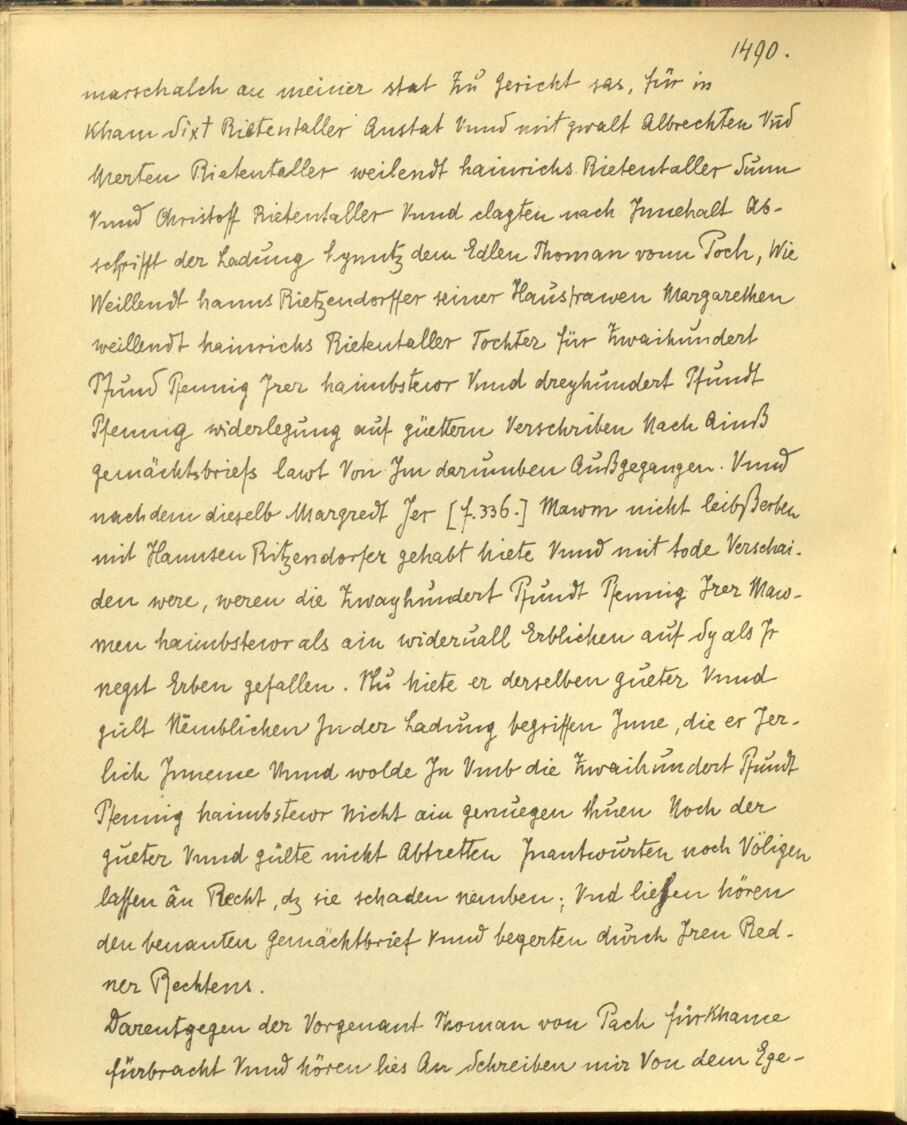 1490.
marschalch an meiner stat Zu Gericht sas, für in
Kham Sixt Rietentaller Anstat Vnnd mit gwalt Albrechten Vnd
Merten Rietentaller weilendt hainrichs Rietentaller Sunn
Vnnd Christoff Rietentaller Vnnd clagten nach Innehalt Ab-
schrifft der Ladung hynntz dem Edlen Thoman vonn Poch, Wie
Weillendt hanns Rietzendorffer seiner Hausfrawen Margarethen
weillendt hainrichs Rietentaller Tochter für Zwaihundert
Pfund Pfennig Irer haimbstewr Vnnd dreyhundert Pfundt
Pfennig widerlegung auf güettern Verschriben Nach Ainß
gemächtsbriefs lawt Von Im darumben Außgegangen. Vnnd
nachdem dieselb Margredt Ier [f. 336.] Mawm nicht leibßerben
mit Hannsen Ritzendorfer gehabt hiete Vnnd mit tode Verschai-
den were, weren die Zwayhundert Pfundt Pfennig Irer Maw-
men haimbstewr als ain widerüall Erblichen auf Sy als Ir
negst Erben gefallen. Nu hiete er derselben gueter Vnnd
gült Nemblichen In der Ladung begriffen Inne, die er Jer-
lich Inneme Vnnd wolde In Vmb die Zwaihundert Pfundt
Pfennig haimbstewr Nicht ain genuegen thuen Noch der
gueter Vnnd gülte nicht Abtretten Inantwurten noch Völigen
lassen ân Recht, dz sie schaden nemben; Vnd liessen hören
den benanten Gemächtbrief Vnnd begerten durch Iren Red-
ner Rechtens.
Darentgegen der Vorgenant Thoman von Pach fürkhame
fürbracht Vnnd hören lies An Schreiben mir Von dem Ege-